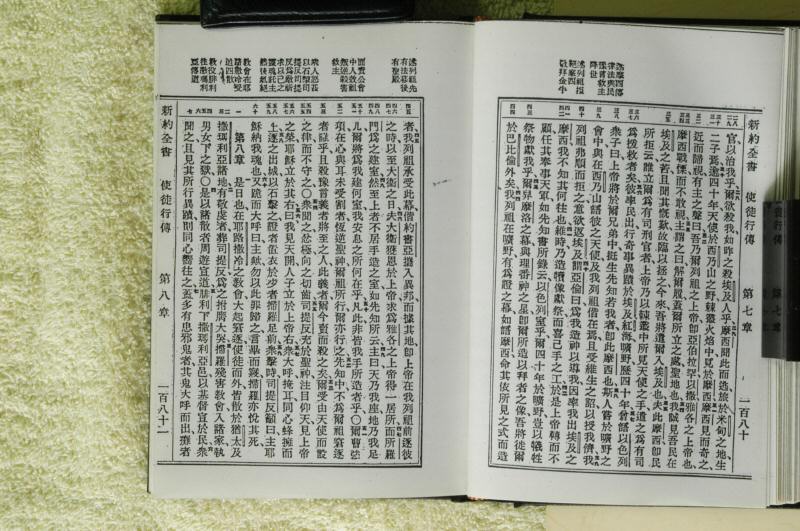 新約全書 使徒行傳 第七章 一百八十
官以治我乎爾欲殺我如昨之殺埃及人乎摩西聞此而逃旅於米甸之地生
二子焉逾四十年天使於西乃山之野棘叢火焰中見於摩西摩西見而奇之
近而諦視有主之聲曰吾乃爾列祖之上帝卽亞伯拉罕以撒雅各之上帝也
摩西戰慄而不敢視主謂之曰解爾履蓋爾所立之處聖地也我誠見吾民在
埃及之苦且聞其慨歎故臨以拯之今來吾將遣爾入埃及也夫此摩西卽民
所拒云誰立爾爲有司刑官者上帝乃以棘叢中所見天使之手遣之爲有司
爲援救者矣彼率民出行奇事異蹟於埃及紅海曠野歷四十年曾語以色列
衆子曰上帝將於爾兄弟中挺生先知若我者卽此摩西也斯人嘗於曠野之
會中與在西乃山語彼之天使及我列祖偕在焉且受維生之詔以授我儕我
列祖弗順而拒之意欲返埃及謂亞倫曰爲我造神以導我因率我出埃及之
摩西我不知其何往也維時乃造犢像獻祭而喜己手之工於是上帝轉而不
顧任其奉事天軍如先知書所錄云以色列室乎爾四十年於曠野豈以犧牲
祭物獻我乎爾舁摩洛之幕與理番神之星卽爾所造以拜者之像吾將徙爾
於巴比倫外矣我列祖在曠野有爲證之幕如語摩西命其依所見之式而造
者我列祖承受此幕偕約書亞攜入異邦而據其地卽上帝在我列祖前逐彼
之時以至大衛之日夫大衛獲恩於上帝求爲雅各之上帝得一居所而所羅
門爲之建室然至上者不居手造之室如先知所云主曰天乃我座地乃我足
几爾將爲我建何室我安息之所何在乎凡此非皆我手所造者乎○爾曹強
項在心與耳未受割者恆逆聖神爾祖所行爾亦行之先知中不爲爾祖窘逐
者誰乎且殺豫言義者將至之人此義者爾今賣而殺之矣爾受由天使而設
之律而不守之○衆聞之忿極向之切齒司提反充於聖神注目仰天見上帝
之榮耶穌立於其右曰我見天開人子立於上帝右衆大呼掩耳同心蜂擁而
上逐之出城以石擊之證者置衣於少者掃羅足前衆擊時司提反籲曰主耶
穌納我魂也又跪而大呼曰主歟勿以此罪歸之言畢而寢掃羅亦悅其死
第八章 是日也在耶路撒冷之教會大起窘逐使徒而外皆散於猶太及
撒瑪利亞諸地有敬虔者葬司提反爲之拊膺大哭掃羅殘害教會入諸家執
男女下之獄○是以諸散者周遊宣道腓利下撒瑪利亞邑以基督宣於民衆
聞之且見其所行異蹟則同心嚮往之蓋多有患邪鬼者其鬼大呼而出癱者
新約全書 使徒行傳 第八章 一百八十一